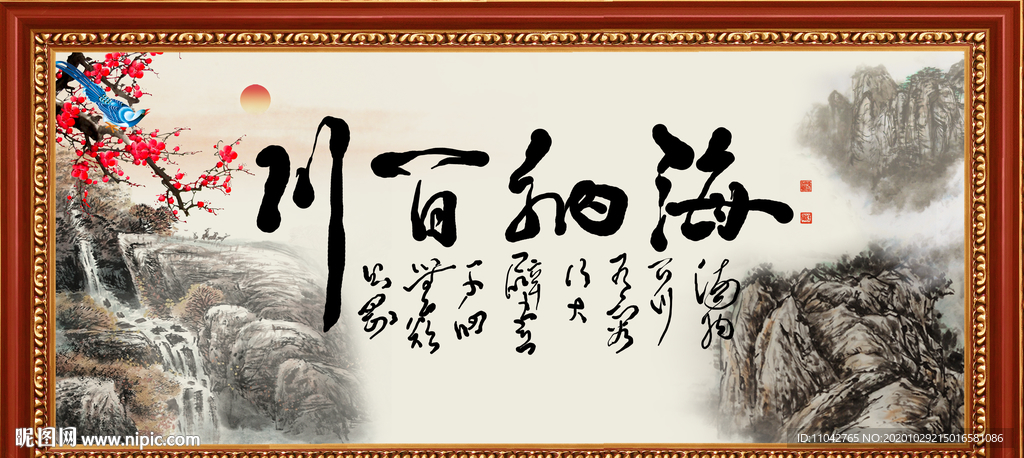 海纳百川
海纳
百川
有容
大
壁立
千仞
無欲
则刚
昵图网 www.nipic.com
ID:11042765 NO:20201029215016581086